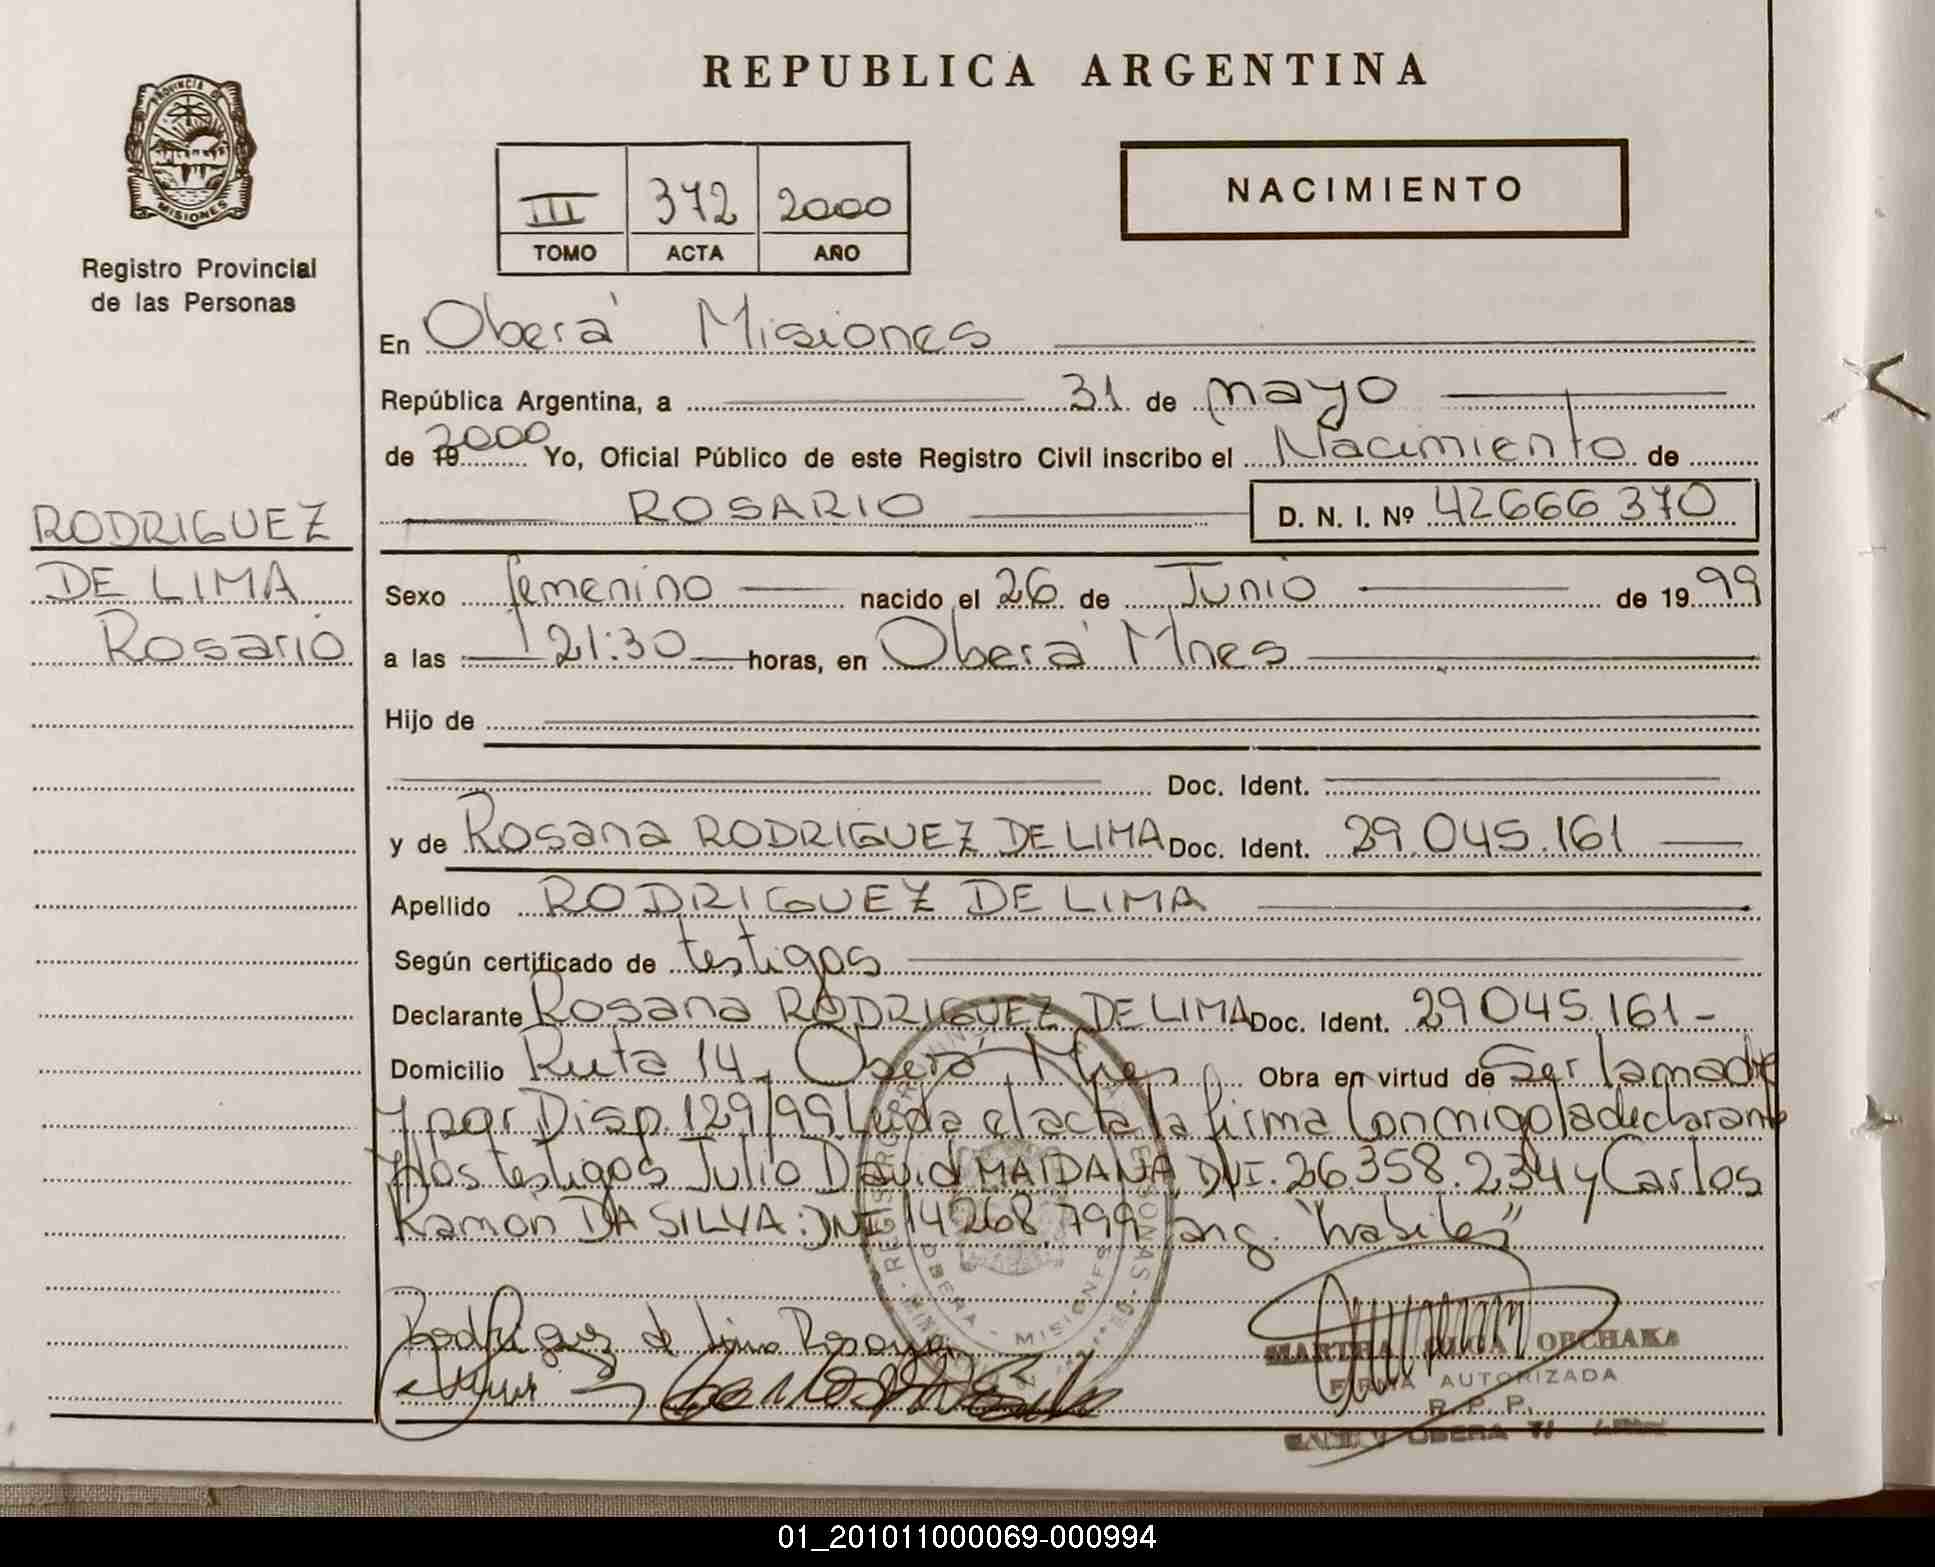 PROVINCIA DE
MISIONES
Registro Provincial
de las Personas
RODRIGUEZ
DE LIMA
Rosario
REPUBLICA ARGENTINA
III 372 2000
TOMO ACTA AÑO
NACIMIENTO
En Oberá Misiones
República Argentina, a 31 de mayo
de 19 2000 Yo, Oficial Público de este Registro Civil inscribo el Nacimiento de
ROSARIO D. N. I. Nº 42666370
Sexo femenino nacido el 26 de Junio de 1999
a las 21:30 horas, en Oberá Mnes
Hijo de
Doc. Ident.
y de Rosana RODRIGUEZ DE LIMA Doc. Ident. 29.045.161
Apellido RODRIGUEZ DE LIMA
Según certificado de testigos
Declarante Rosana RODRIGUEZ DE LIMA Doc. Ident. 29045.161-
Domicilio Ruta 14, Oberá Mnes Obra en virtud de Ser la madre
y por Disp. 129/99 Leída el acta la firma Conmigo la declarante
y los testigos Julio David MAIDANA, DNI. 26.358.234 y Carlos
Ramón DA SILVA: DNI 14268.799 arg. "habiles"
Rodriguez de Lima Rosana
OBERA - MISIONES
MARTHA OLGA OBCHAKA
FIRMA AUTORIZADA
R. P. P.
OBERA
01_201011000069-000994